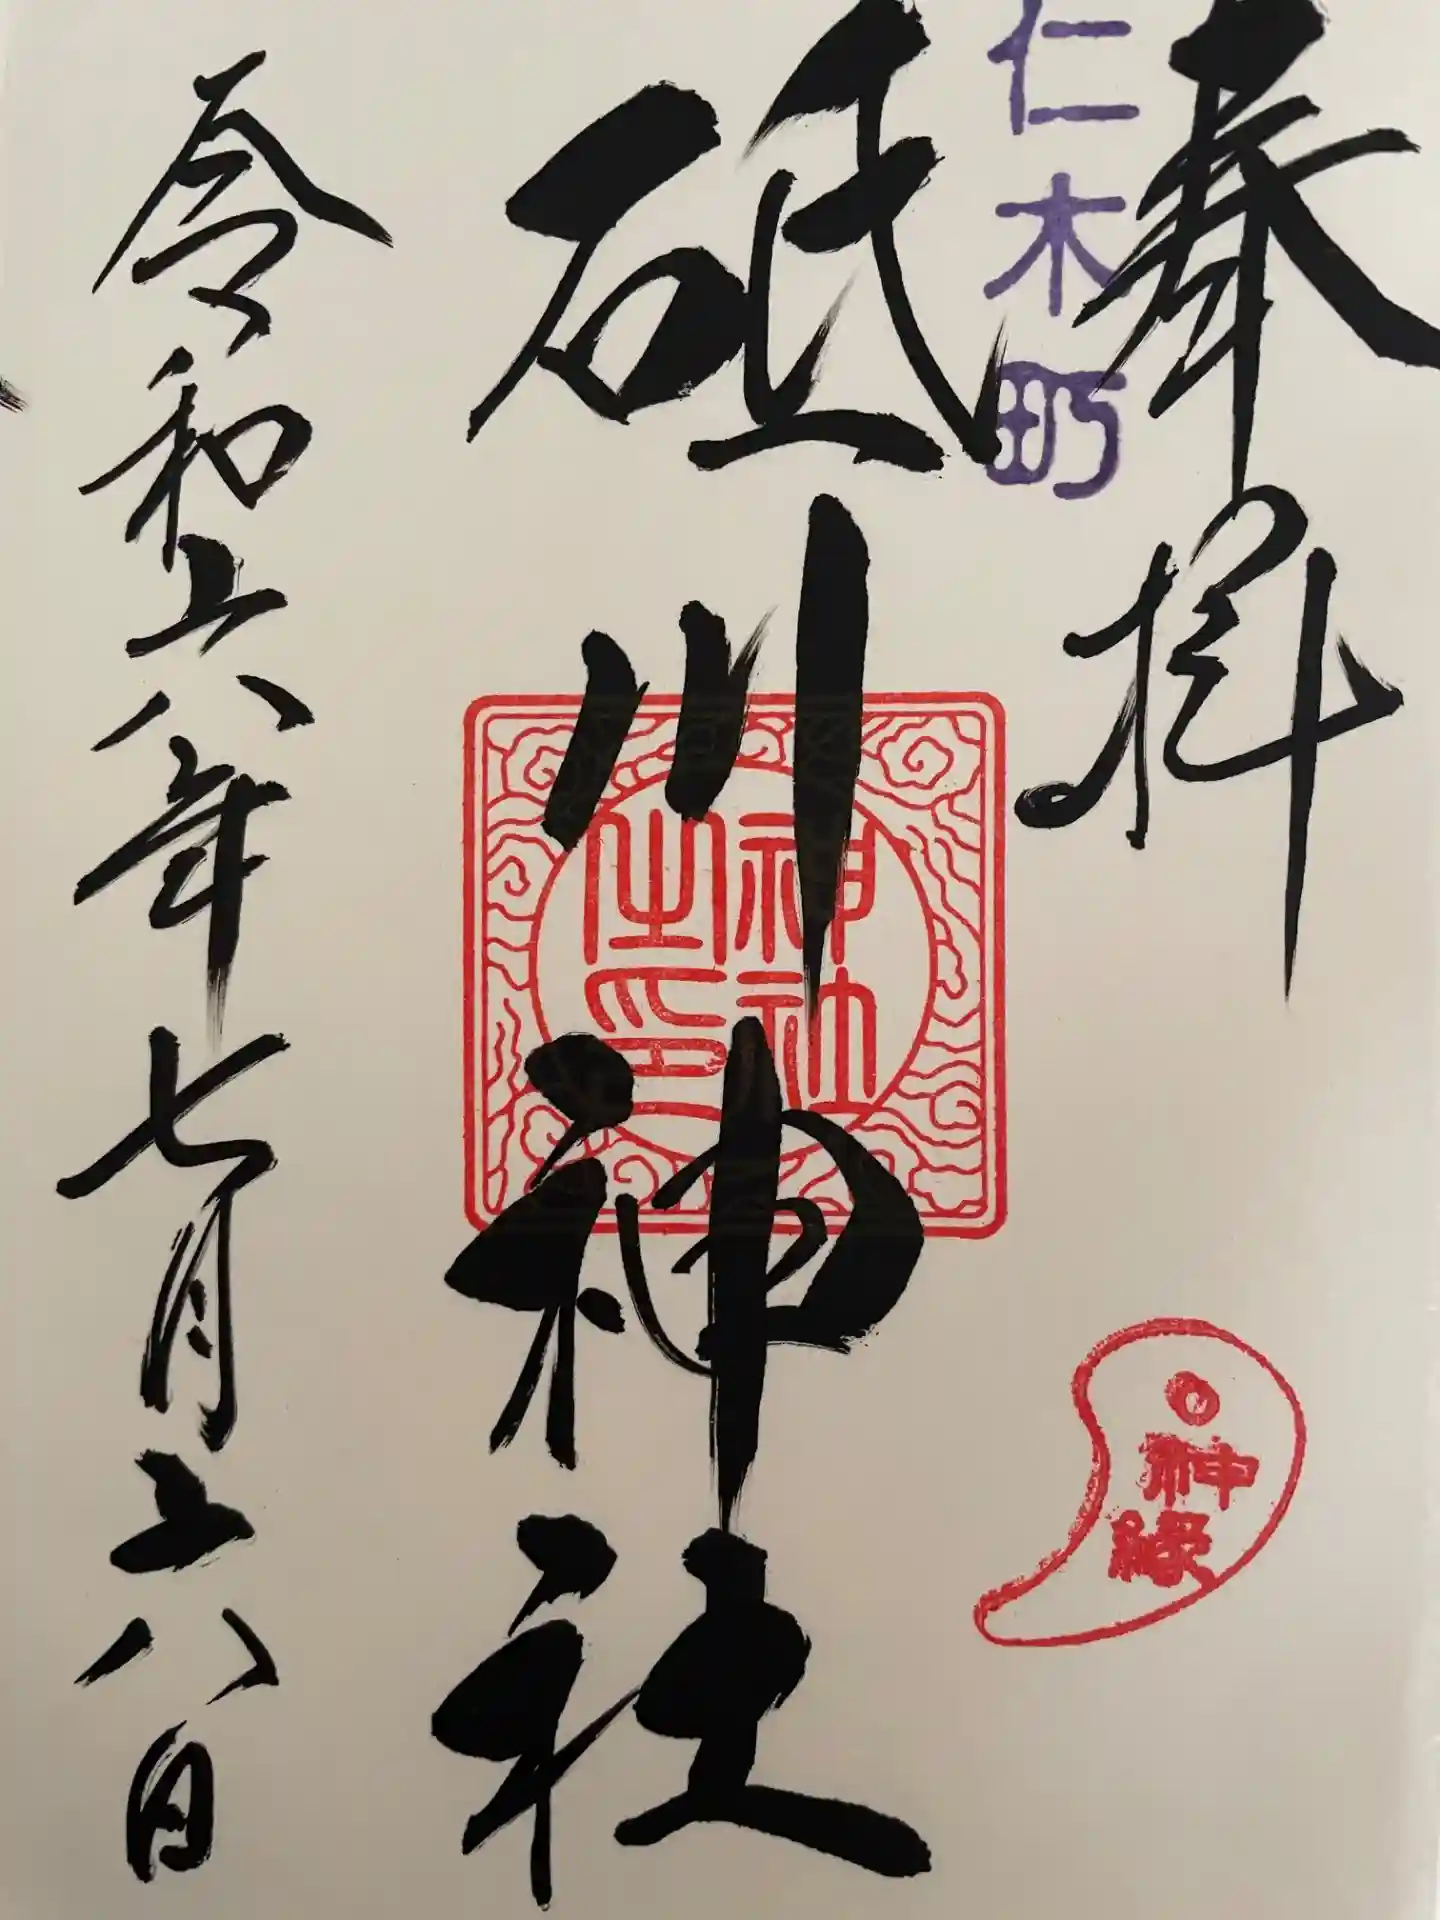 奉拝
仁木町
砥川神社
神社之印
神縁
令和六年七月六日